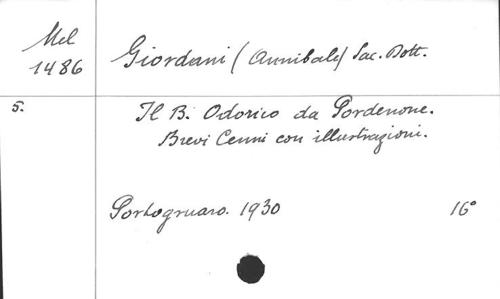 Mel
1486
Giordani (Annibale) Sac. Dott.
5.
Il B. Odorico da Pordenone.
Brevi Cenni con illustrazioni.
Portogruaro. 1930
16°